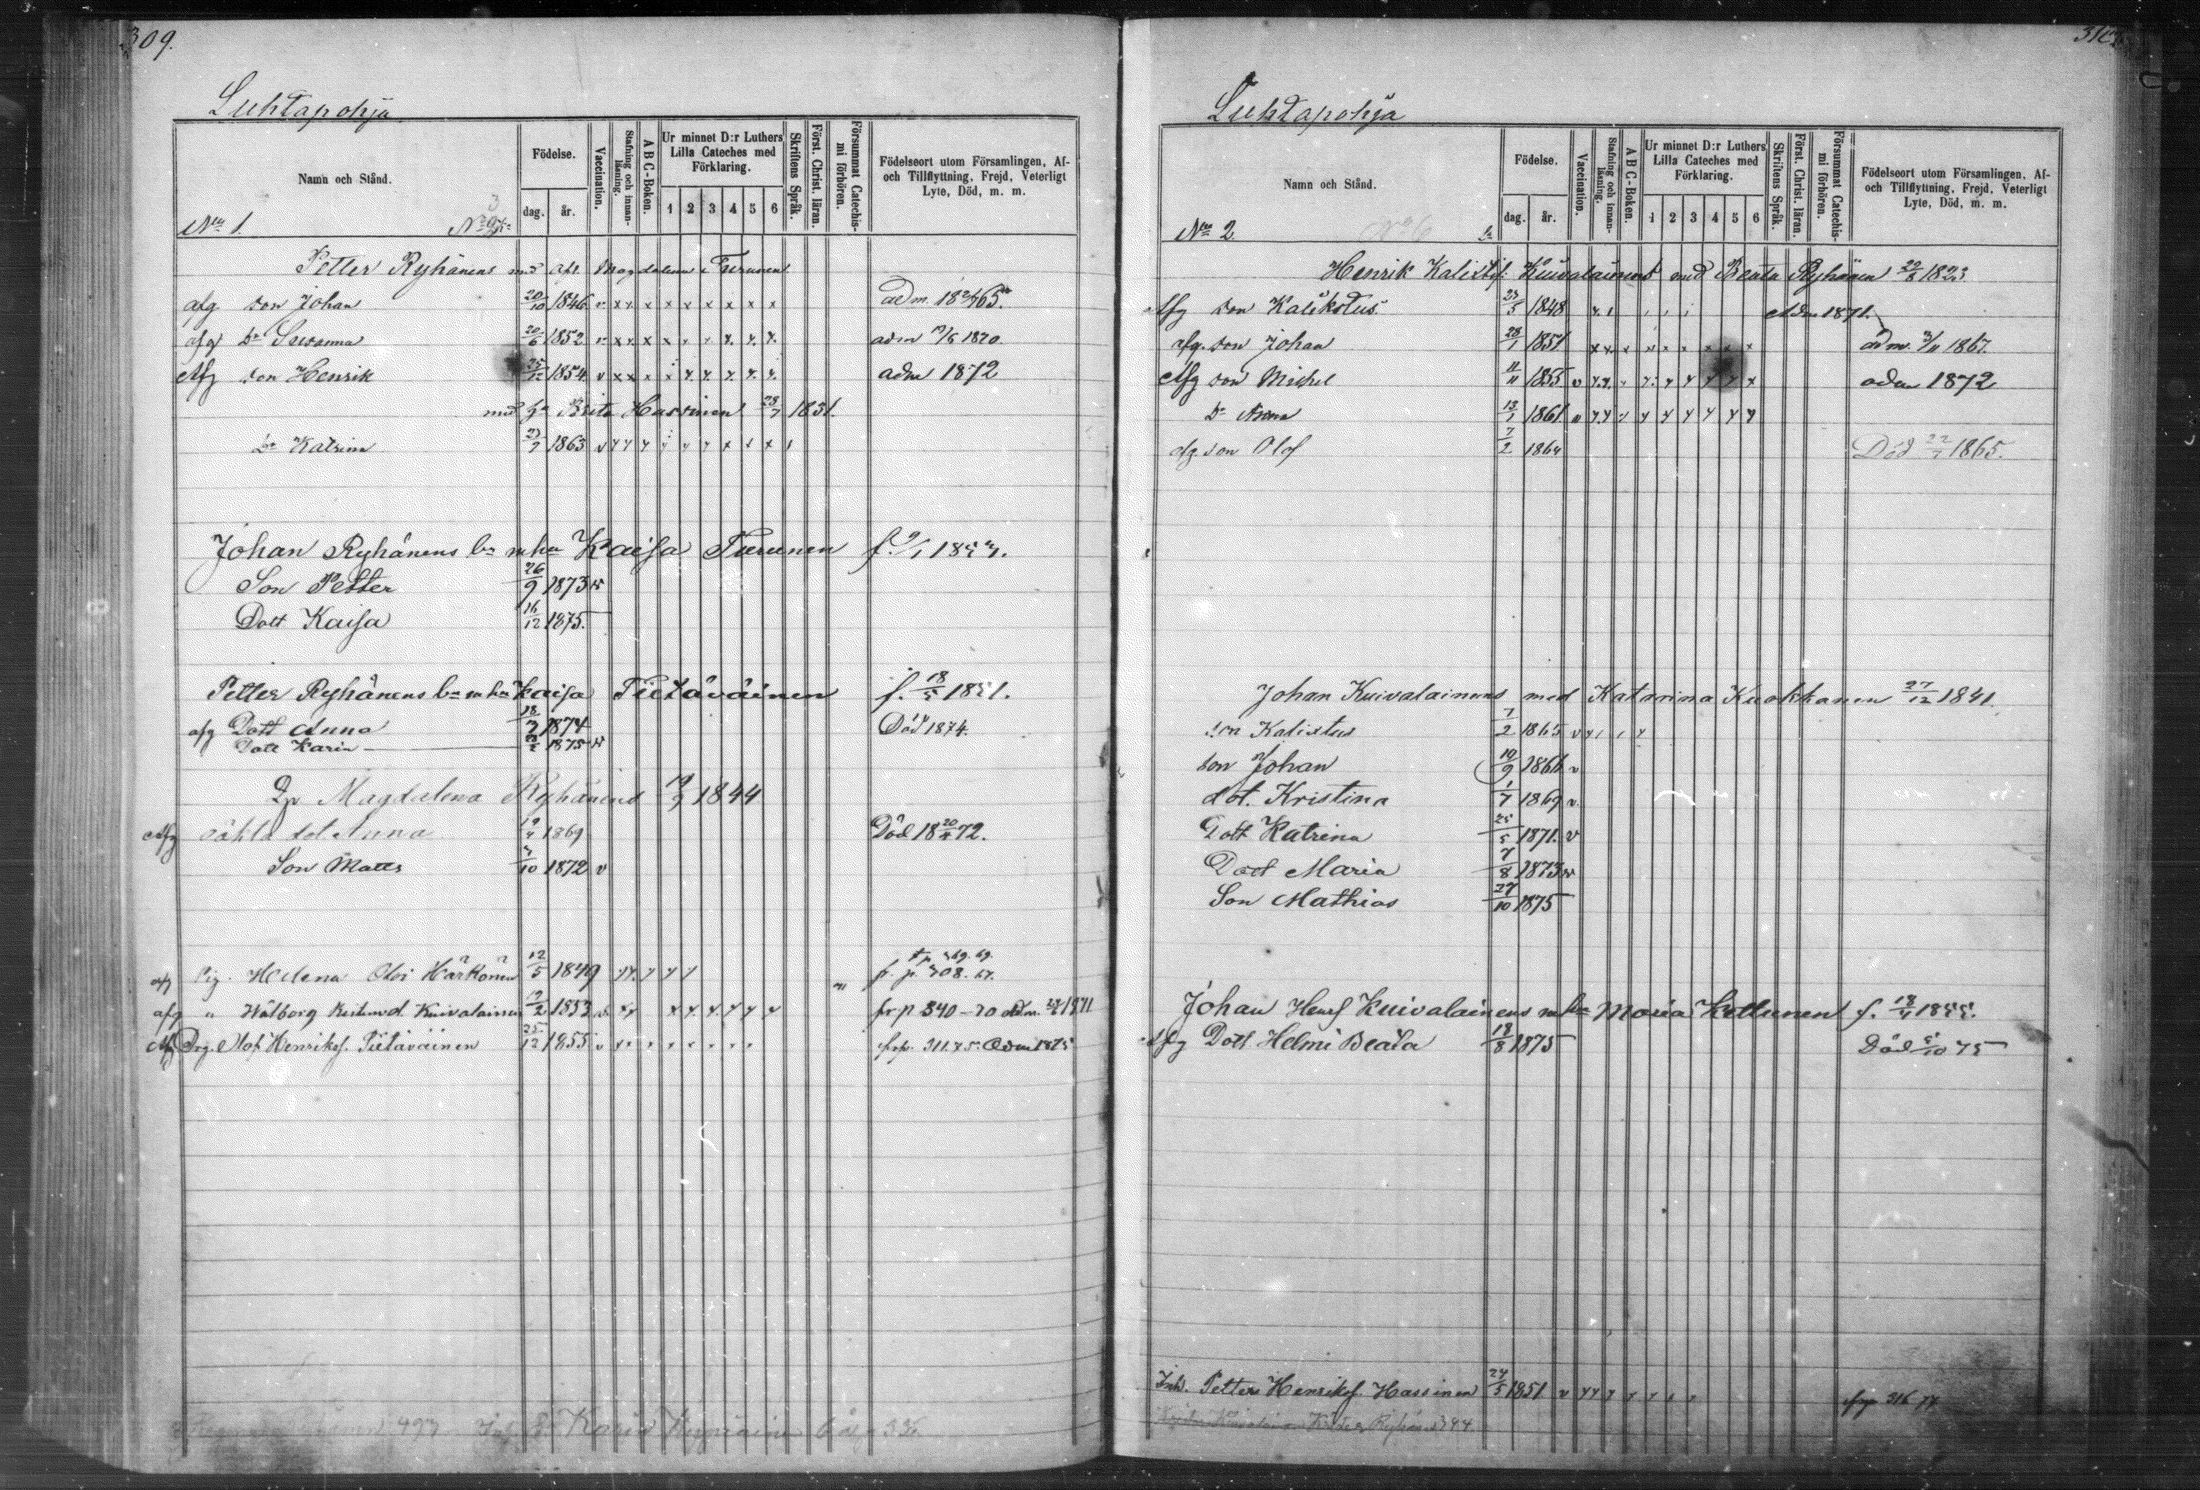 309.
Luhtapohja
Namn och Stånd.
Födelse.
dag. år.
Vaccination.
Stafning och innanläsning.
A B C-Boken.
Ur minnet D:r Luthers Lilla Cateches med Förklaring.
1 2 3 4 5 6
Skriftens Språk.
Först. Christ. läran.
Försummat Catechismi förhören.
Födelseort utom Församlingen, Af- och Tillflyttning, Frejd, Veterligt Lyte, Död, m. m.
No 1.
Petter Ryhänens med afl. Magdalena Turunen
afg son Johan 20/10 1846 v x x x x x x x x x adm.
afg Dr Susanna 20/6 1852 adm 1870
Afg son Henrik 25/12 1854 v x x x adm 1872
med hu Brita Hassinen 28/7 1831.
Dr Katrina 23/7 1863 v
Johan Ryhänens bn m hu Kaisa Turunen
Son Petter 26/9 1873 v
Dott Kaisa 16/12 1875.
Petter Ryhänens bn m hu Kaisa Tietäväinen f. 18/5 1851.
afg Dott Anna 18/7 1874 Död 1874.
Dott Karin 1875 v
Magdalena Ryhänens 19/9 1844
Afg oäkta dot Anna 1869 Död 18 20/ 72.
Son Matts /10 1872 v
afg Pig. Helena Olsi Härkönen 12/5 1849 fr. p. 308. 67.
afg " Walborg Kristersd. Kuivalainen /2 1853 fr p 340 - 70 adm. 1871
Afg Drg. Olof Henriksf. Tietäväinen 25/12 1855 v frp. 311. 75. Adm 1875
Karin
310.
Luhtapohja
Namn och Stånd.
Födelse.
dag. år.
Vaccination.
Stafning och innanläsning.
A B C-Boken.
Ur minnet D:r Luthers Lilla Cateches med Förklaring.
1 2 3 4 5 6
Skriftens Språk.
Först. Christ. läran.
Försummat Catechismi förhören.
Födelseort utom Församlingen, Af- och Tillflyttning, Frejd, Veterligt Lyte, Död, m. m.
No 2. No 6
Henrik Kalixtsf. Kuivalainens med Beata Ryhänen 20/8 1823
Afg son Kalikstus. 23/5 1848 Adm 1871.
afg. son Johan 28/1 1851 adm. 3/11 1867.
Afg son Michel 11/11 1855 v adm 1872
Dr Anna 13/1 1861 v
afg son Olof 7/2 1864 Död 1865.
Johan Kuivalainens med Katarina Kuokkanen 27/12 1841.
son Kalixtus 7/2 1865 v
son Johan 10/9 1866 v
dot. Kristina 1/7 1869 v.
Dott Katrina 25/5 1871. v
Dott Maria 7/8 1873 v
Son Mathias 27/10 1875
Johan Henrsf Kuivalainens m hu Maria Kettunen f. 1855.
Afg Dott Helmi Beata 18/8 1875 Död 5/10 75
Inh. Petter Henriksf. Hassinen 24/5 1851 v frp 316 77